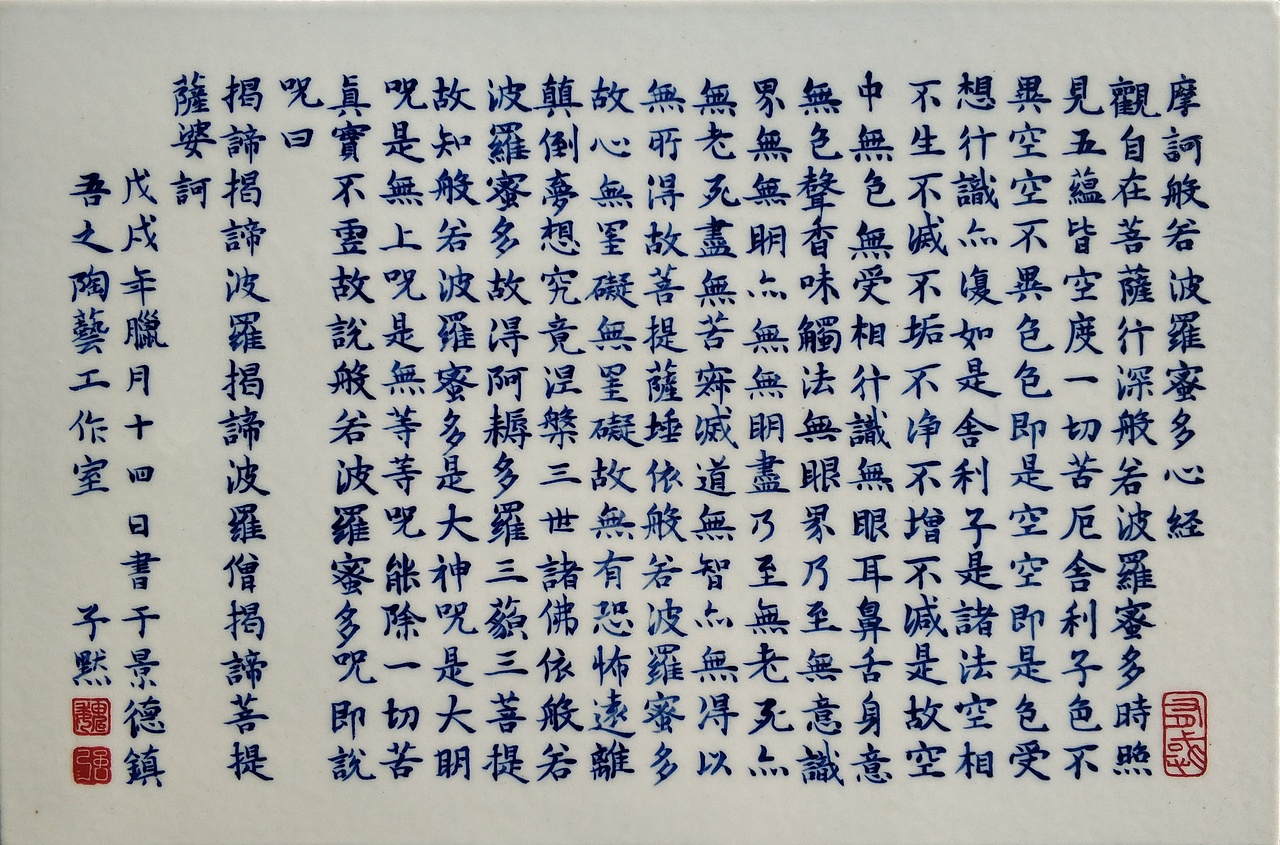 摩訶般若波羅蜜多心経
觀自在菩薩行深般若波羅蜜多時照
見五蘊皆空度一切苦厄舍利子色不
異空空不異色色即是空空即是色受
想行識亦復如是舍利子是諸法空相
不生不滅不垢不净不增不減是故空
中無色無受相行識無眼耳鼻舌身意
無色聲香味觸法無眼界乃至無意識
界無無明亦無無明盡乃至無老死亦
無老死盡無苦寂滅道無智亦無得以
無所得故菩提薩埵依般若波羅蜜多
故心無罣礙無罣礙故無有恐怖遠離
顛倒夢想究竟涅槃三世諸佛依般若
波羅蜜多故得阿耨多羅三藐三菩提
故知般若波羅蜜多是大神咒是大明
咒是無上咒是無等等咒能除一切苦
真實不虛故說般若波羅蜜多咒即說
咒曰
揭諦揭諦波羅揭諦波羅僧揭諦菩提
薩婆訶
戊戌年臘月十四日書于景德鎮
吾之陶藝工作室 子默
魏
強